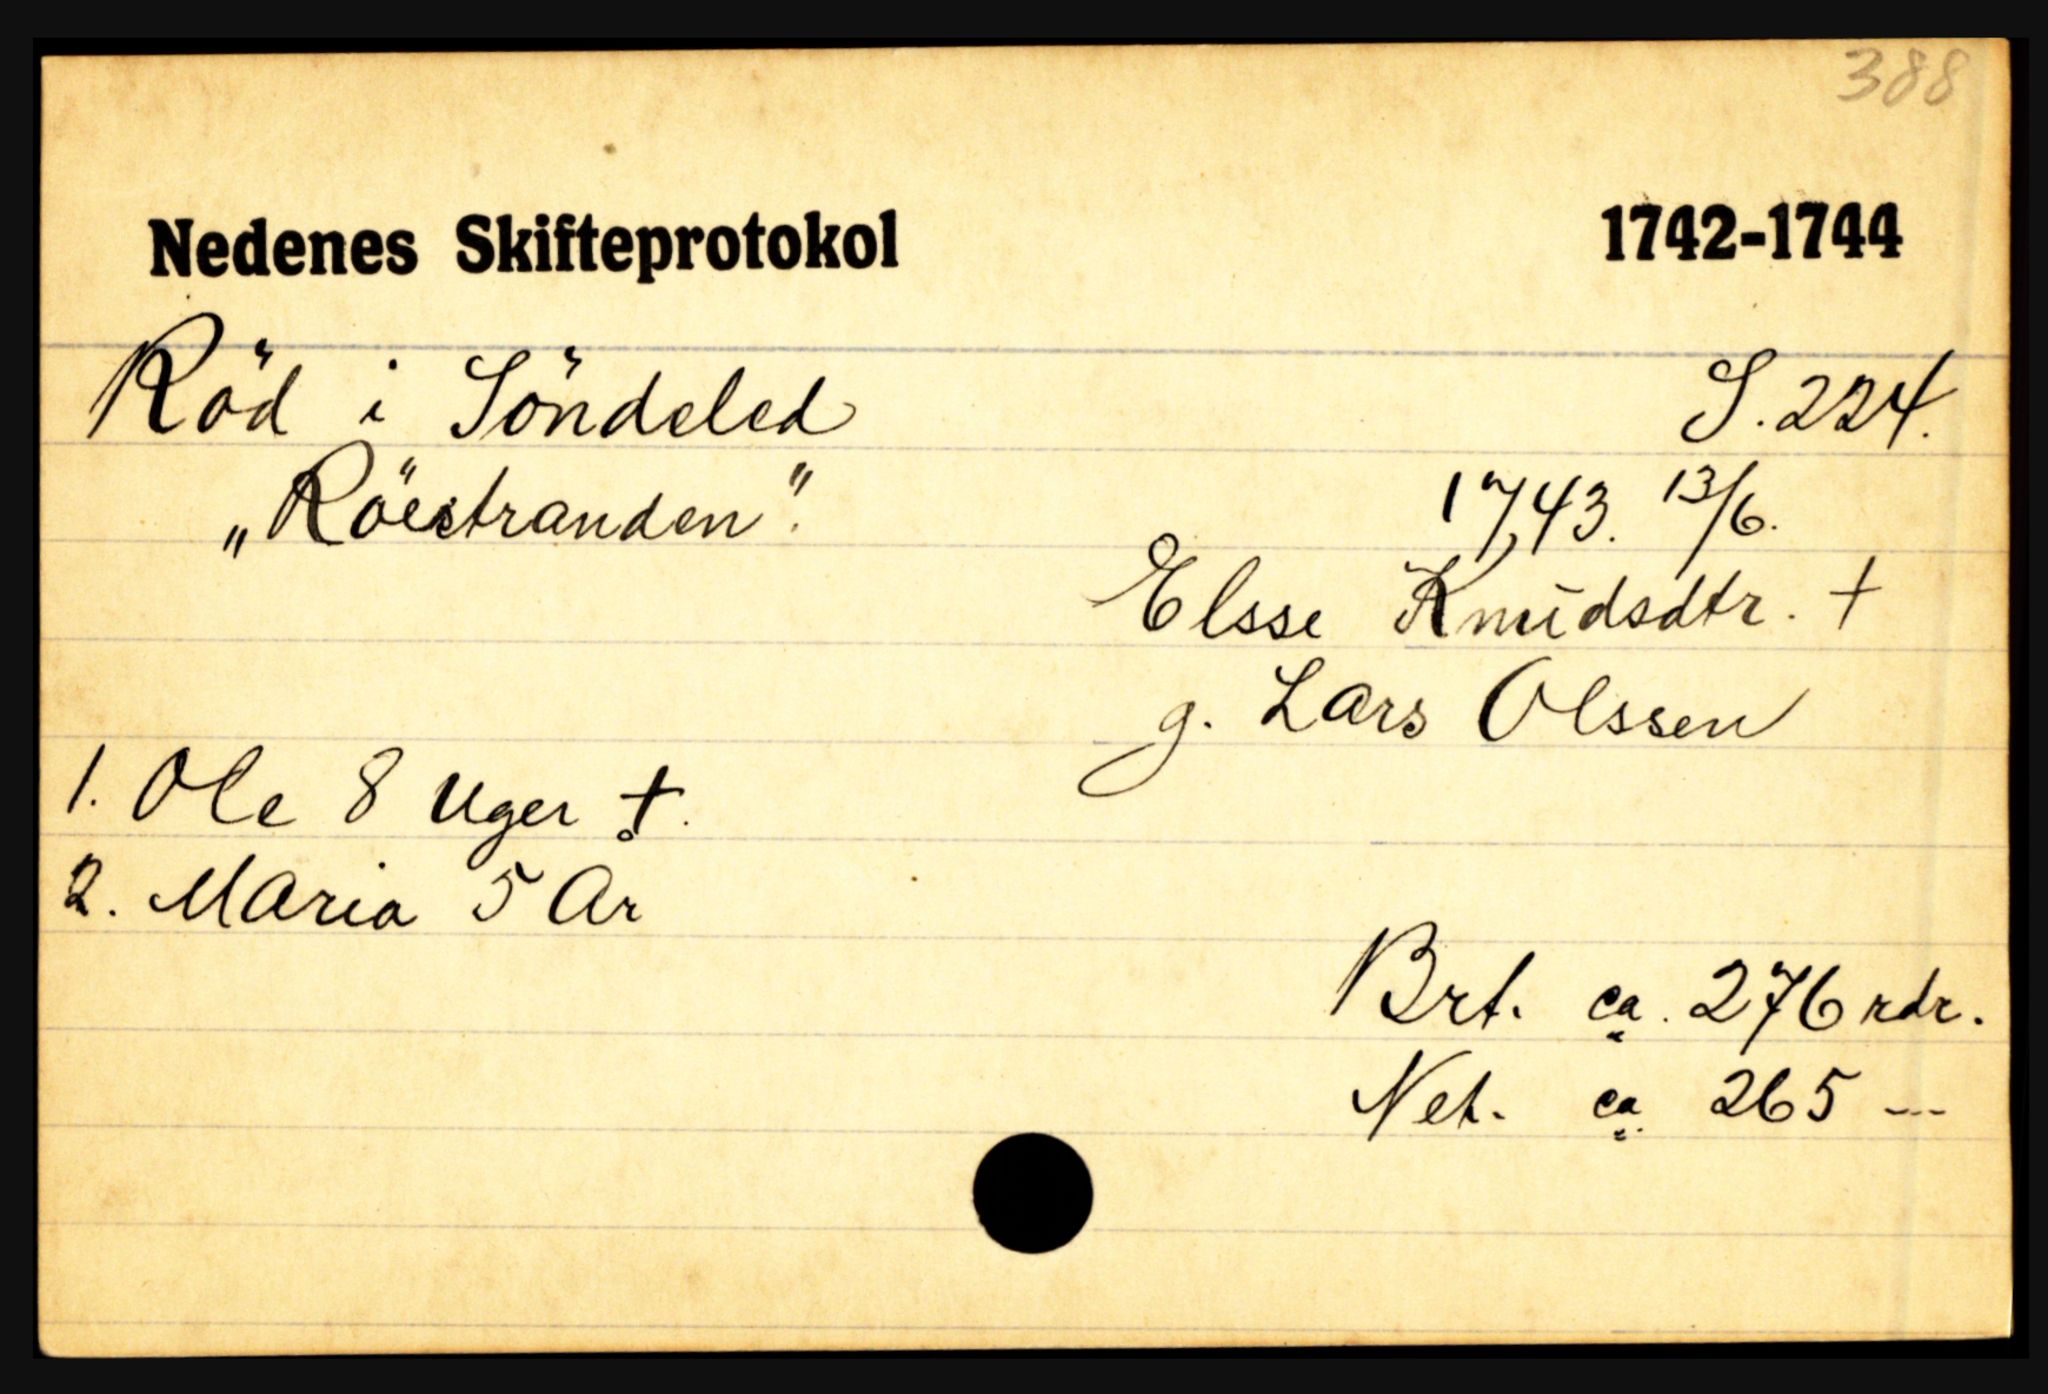 388
Nedenes Skifteprotokol 1742-1744
Röd i Söndeled S. 224.
„Röestranden". 1743. 13/6.
Elsse Knudsdtr. †
g. Lars Olssen
1. Ole 8 Uger †.
2. Maria 5 År
Brt. ca. 276 rdr.
Net. ca. 265 ---